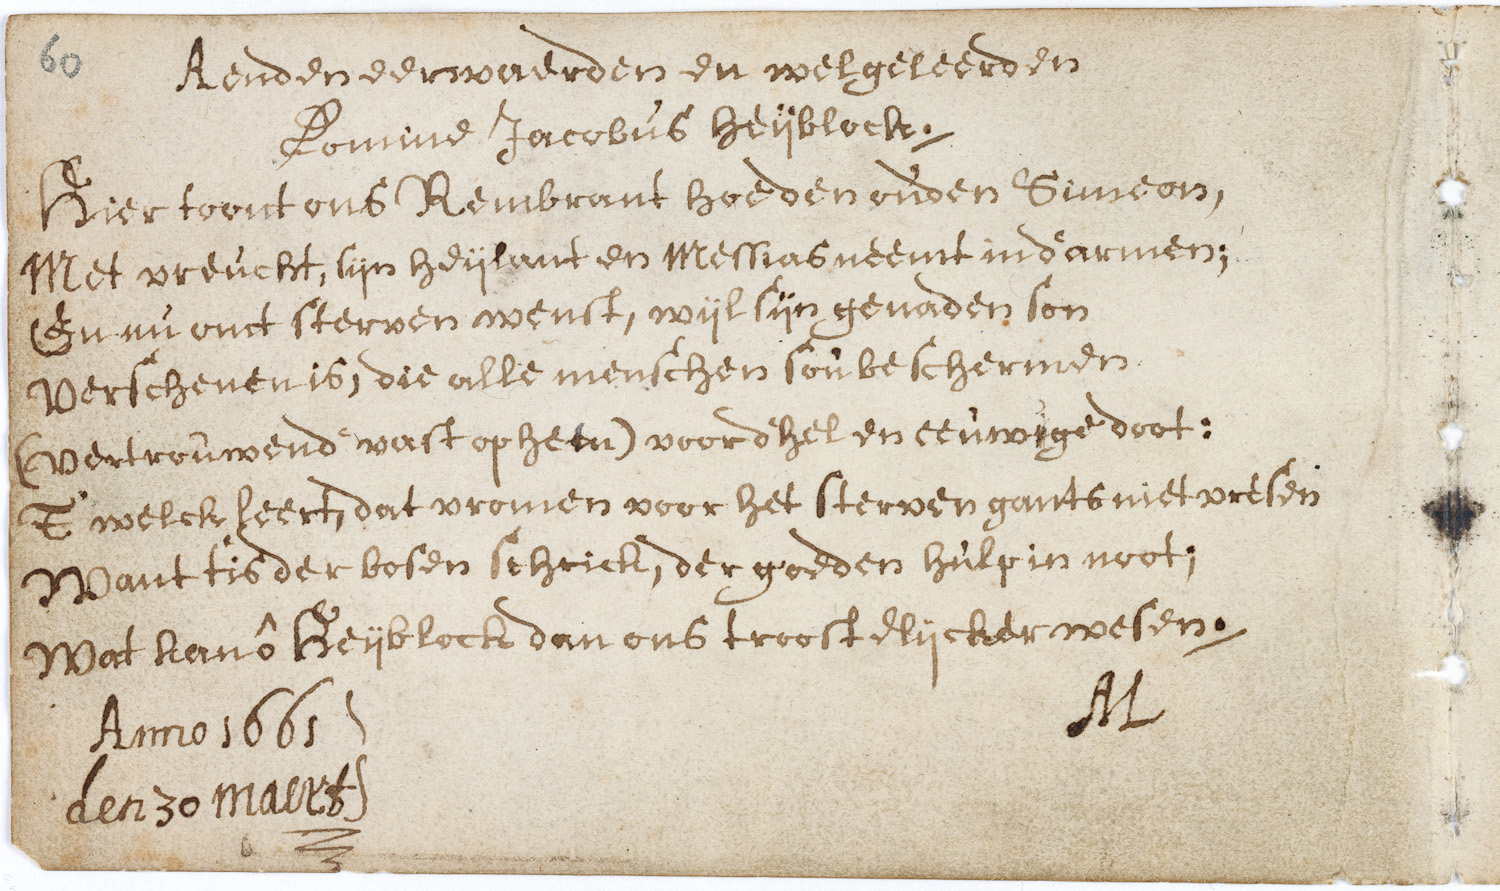 60
Aenden eerwaerden en welgeleerden
Domine Jacobus heijblock.
Hier toont ons Rembrant hoe den ouden Simeon,
Met vreucht, sijn heijlant en Messias neemt in d'armen;
En nu onct sterven wenst, wijl sijn genaden son
Verschenen is, die alle menschen sou beschermen
(Vertrouwend vast op hem) voor d'hel en eeuwige doot:
T' welck leert, dat vromen voor het sterven gants niet vresen
Want tis der bosen schrick, der goeden hulp in noot;
Wat kan ô Heijblock dan ons troostelijcker wesen.
Anno 1661
den 30 maert
AL